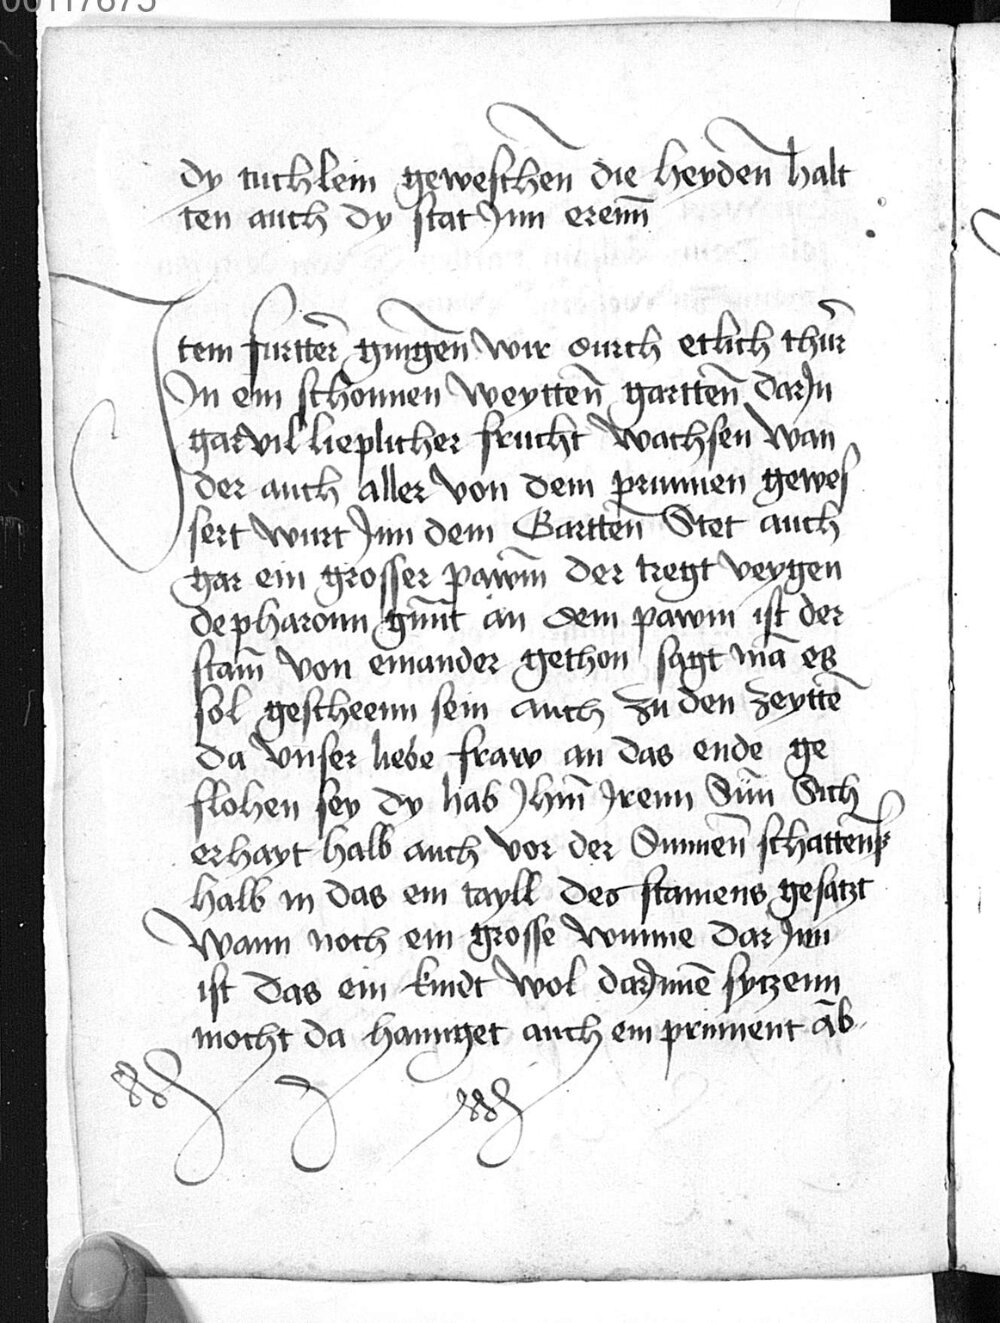 dy tuchlein geweschen die heyden halt
ten auch dy stat Jnn erenn
Jtem furtter gingen wir durch etlich thur
Jn ein schonnen weytten gartten darJn
gar vil lieplicher frucht wachsen wan
der auch aller von dem prunnen gewes
sert wurt Jnn dem Gartten Stet auch
gar ein grosser pawm der tregt veygen
de pharonn gnnt an dem pawm ist der
stam von einander gethon sagt mā es
sol gescheenn sein auch zu den zeyttē
da vnser liebe fraw an das ende ge
flohen sey dy hab Jhm Jrenn Sun Sich
erhayt halb auch vor der Sunnen schattens
halb in das ein tayll des stamens gesatzt
wann noch ein grosse wunne dar Jnn
ist das ein kindt wol darJnnē sytzenn
mocht da hannget auch ein prinnent ab